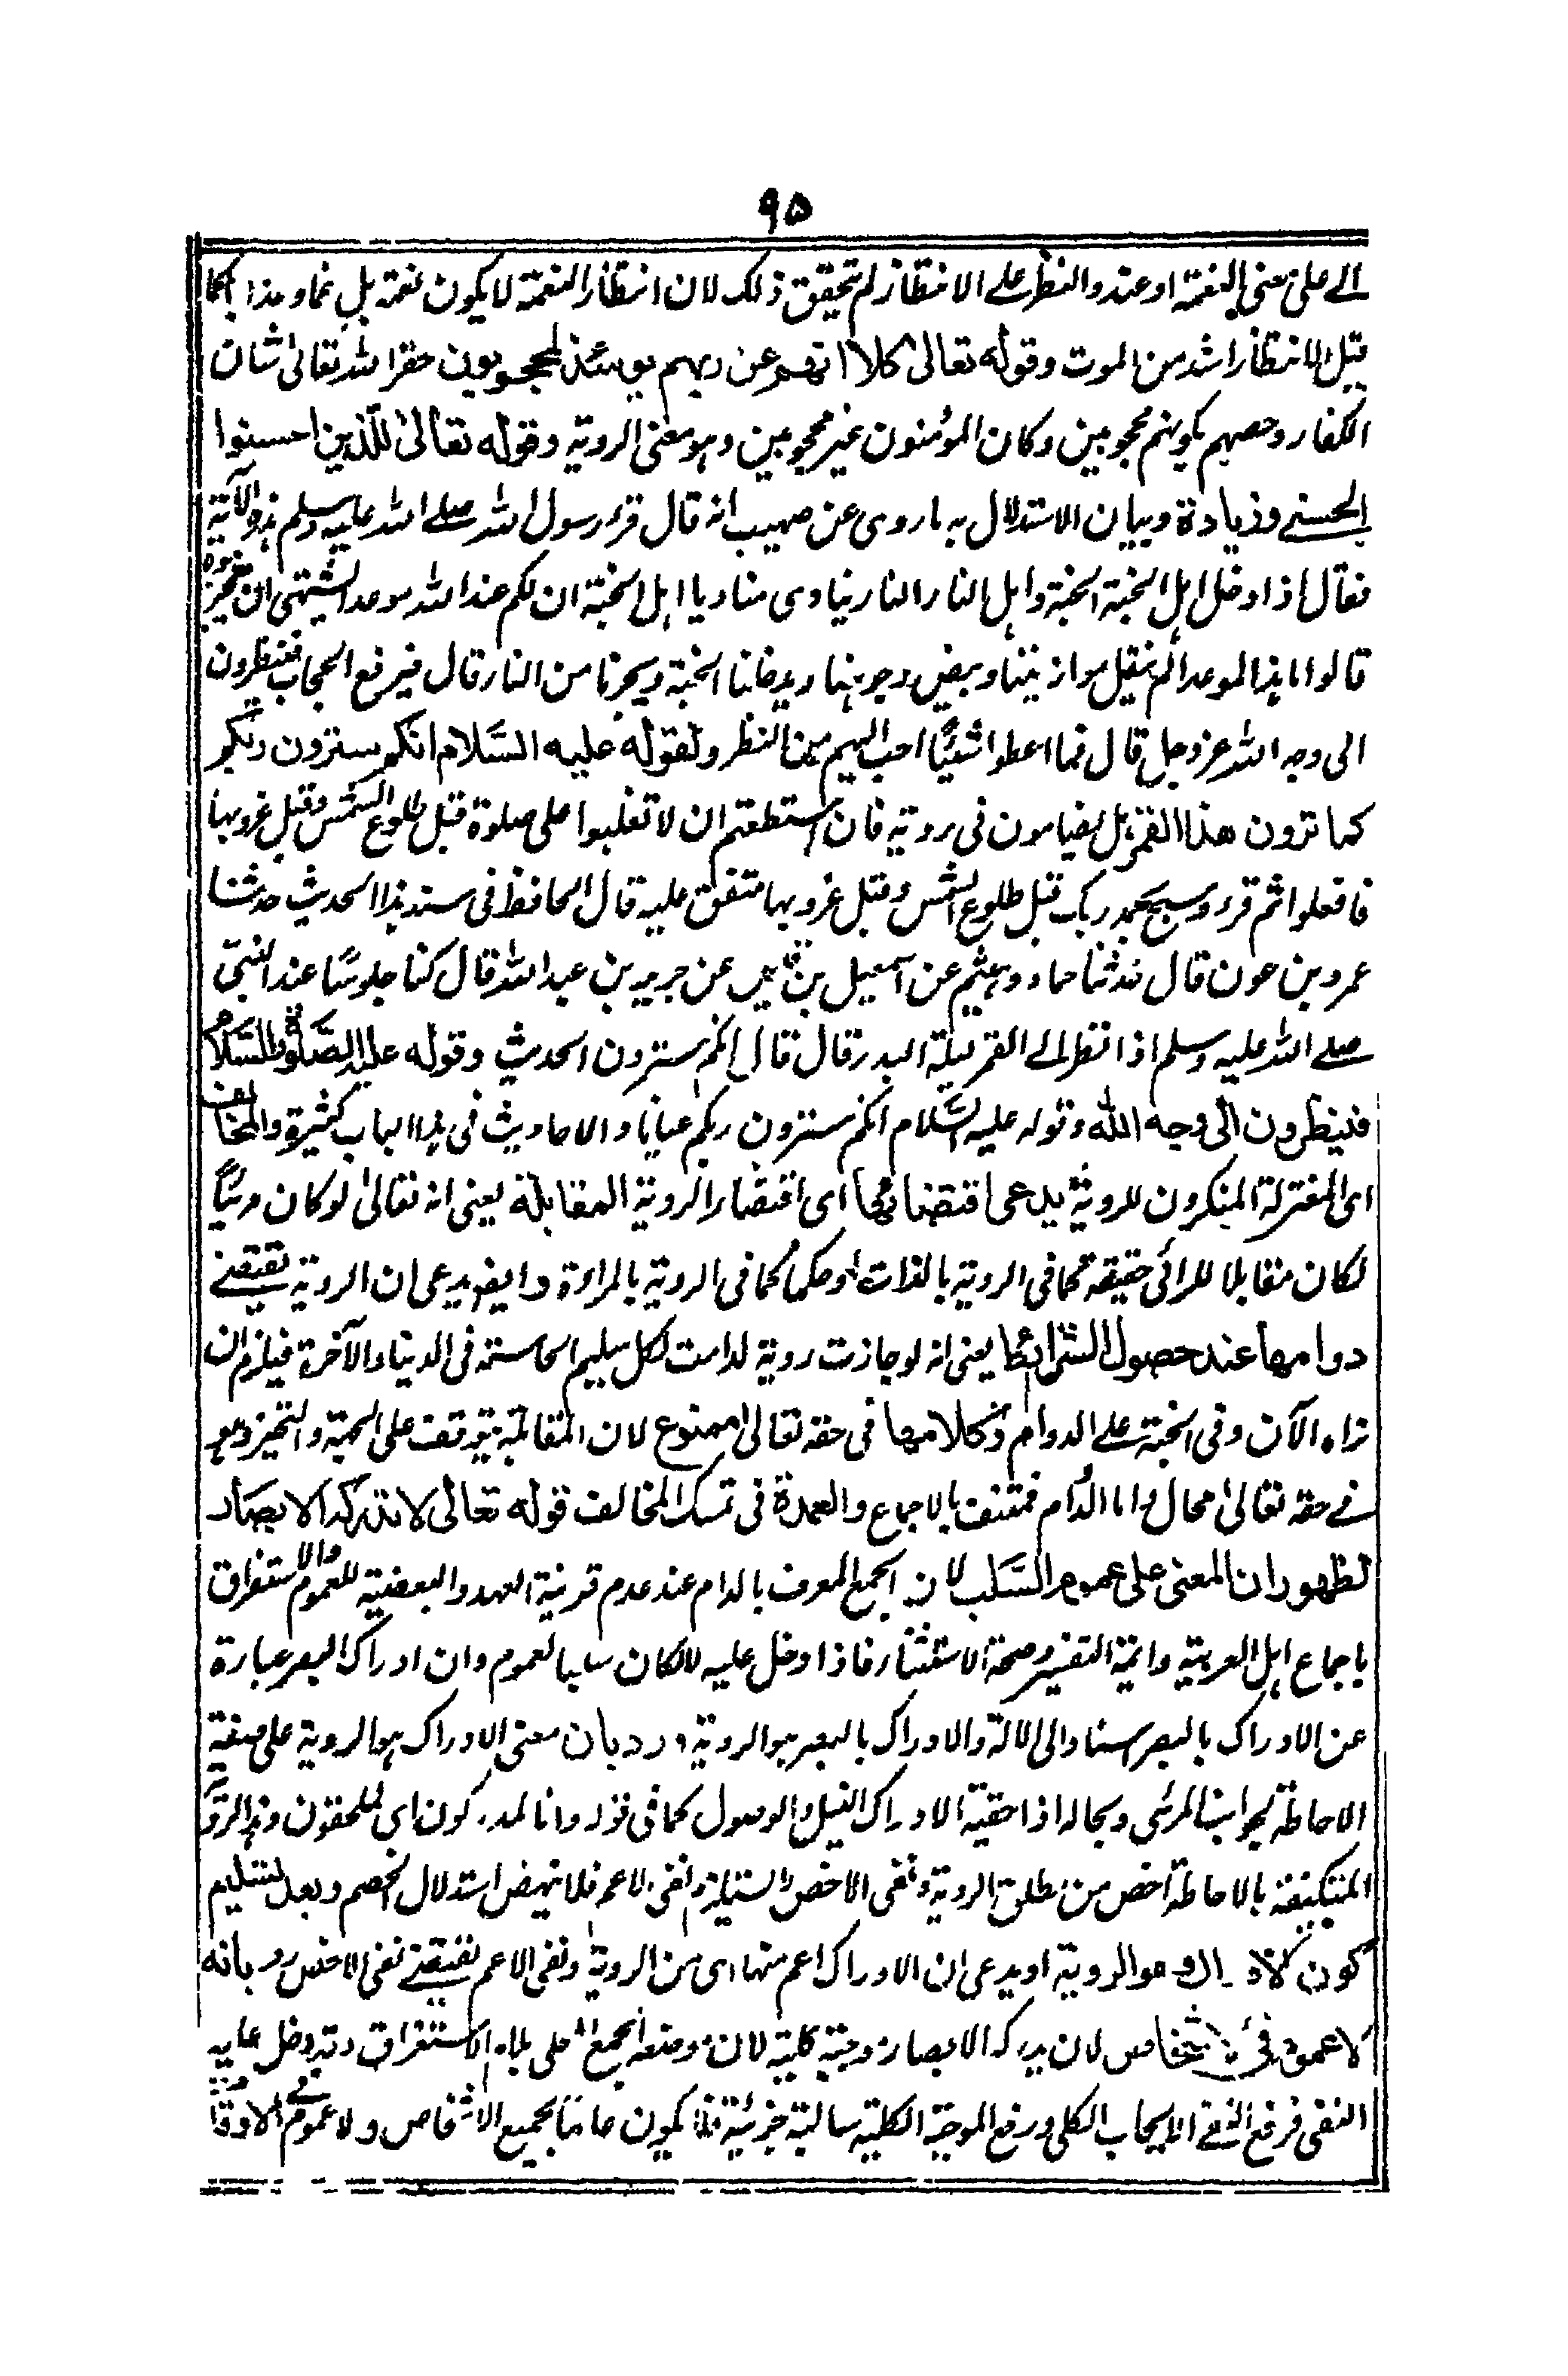 ٩٥
الے علی معنی النعمة او عند والنظر علی الانتظار لم یتحقق ذلک لان انتظار النعمة لا یکون نعمة بل غما و هذا کما
قیل الانتظار اشد من الموت وقوله تعالی کلا انهم عن ربهم یومئذ لمحجوبون حقر الله تعالیٰ شان
الکفار وخصهم بکونهم محجوبین وکان المؤمنون غیر محجوبین وہو معنی الرویة وقوله تعالیٰ للذین احسنوا
الحسنے وزیادة وبیان الاستدلال به ما روی عن صهیب انه قال قرء رسول الله صلے الله علیه وسلم هذه الآیة
فقال اذا دخل اہل الجنة الجنة واہل النار النار ینادی مناد یا اہل الجنة ان لکم عند الله موعدا یشتهی ان ینجزکموه
قالوا ما هذا الموعد الم یثقل موازیننا ویبیض وجوهنا ویدخلنا الجنة ویجرنا من النار قال فیرفع الحجاب فینظرون
الی وجه الله عزوجل قال فما اعطوا شیئًا احب الیهم من النظر ولقوله علیه السَّلام انکم سترون ربکم
کما ترون هذا القمر بل یضامون فی رویته فان استطعتم ان لا تغلبوا علی صلوة قبل طلوع الشمس وقبل غروبها
فافعلوا ثم قرء وسبح بحمد ربک قبل طلوع الشمس وقبل غروبها متفق علیه قال الحافظ فی سند هذا الحدیث حدثنا
عمرو بن عون قال حدثنا حماد وهشیم عن اسمعیل بن قیس عن جریر بن عبد الله قال کنا جلوسًا عند النبیّ
صلے الله علیه وسلم اذا نظر الے القمر لیلة البدر قال قال انکم سترون الحدیث وقوله علیه الصَّلوة والسَّلام
فینظرون الی وجه الله وقوله علیه السَّلام انکم سترون ربکم عیانا والاحادیث فی هذا الباب کثیرة والمخالف
ای المعتزلة المنکرون للرویة یدعی اقتضائها ای اقتضاء الرویة المقابلة یعنی انه تعالیٰ لو کان مرئیًا
لکان مقابلا للرائی حقیقة کما فی الرویة بالذات او حکما کما فی الرویة بالمراءة وایضا یدعی ان الرویة تقتضے
دوامها عند حصول الشرائط یعنی انه لو جازت رویة لدامت لکل سلیم الحاسة فی الدنیا والآخرة فیلزم ان
نراه الآن وفی الجنة علے الدوام وکلامها فی حقه تعالیٰ ممنوع لان المقابلة یتوقف علی الجهة والتحیز وهو
فے حقه تعالیٰ محال واما الدوام فمنتف بالاجماع والعمدة فی تمسک المخالف قوله تعالی لا تدرکه الابصار
لظهور ان المعنی علی عموم السَّلب لان الجمع المعرف بالام عند عدم قرینة العهد والبعضیة للعموم والاستغراق
باجماع اہل العربیة وائمة التفسیر وصحة الاستثناء فاذا دخل علیه لا لکان سلبا لعموم وان ادراک البصر عبارة
عن الادراک بالبصر اسنادا الی الالة والادراک بالبصر ہو الرویة ورد بان معنی الادراک ہو الرویة علی صفة
الاحاطة بجوانب المرئی وبحاله اذا حقیقة الادراک النیل والوصول کما فی قوله وانا لمدرکون ای لملحقون وهذا الرؤیة
المتکیفة بالاحاطة اخص من مطلق الرویة ونفی الاخص لا یستلزم نفی الاعم فلا ینهض استدلال الخصم وبعد تسلیم
کون الادراک هو الرویة او یدعی ان الادراک اعم منها ای من الرویة ونفی الاعم یقتضے نفی الاخص رد بانه
لا عموم فی الاشخاص لان یدرکه الابصار موجبة کلیة لان موضعه الجمع المحلی بلام الاستغراق وقد دخل علیه
النفی فرفع النفے الایجاب الکلی ورفع الموجبة الکلیة سالبة جزئیة فلا یکون عاما لجمیع الاشخاص ولا عموم فے الاوقات